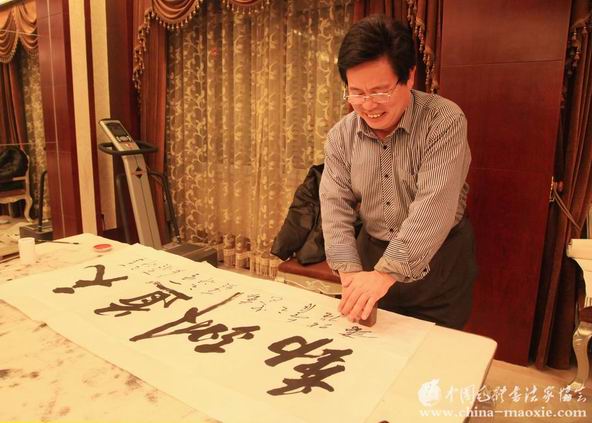 天道酬勤
中国毛体书法家协会
www.china-maoxie.com